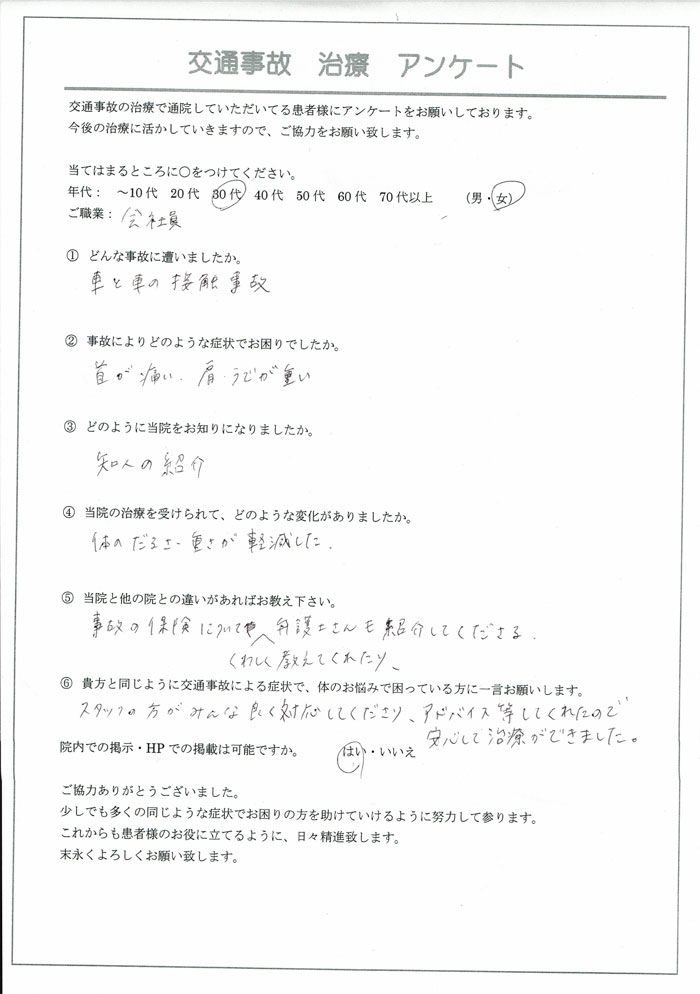 交通事故 治療 アンケート
交通事故の治療で通院していただいてる患者様にアンケートをお願いしております。
今後の治療に活かしていきますので、ご協力をお願い致します。
当てはまるところに〇をつけてください。
年代： ～10代 20代 30代 40代 50代 60代 70代以上 （男・女）
ご職業： 会社員
① どんな事故に遭いましたか。
車と車の接触事故
② 事故によりどのような症状でお困りでしたか。
首が痛い、肩・うでが重い
③ どのように当院をお知りになりましたか。
知人の紹介
④ 当院の治療を受けられて、どのような変化がありましたか。
体のだるさ・重さが軽減した。
⑤ 当院と他の院との違いがあればお教え下さい。
事故の保険について 弁護士さんも紹介してくださる。
くわしく教えてくれたり、
⑥ 貴方と同じように交通事故による症状で、体のお悩みで困っている方に一言お願いします。
スタッフの方がみんな良く対応してくださり、アドバイス等してくれたので
安心して治療ができました。
院内での掲示・HPでの掲載は可能ですか。 はい・いいえ
ご協力ありがとうございました。
少しでも多くの同じような症状でお困りの方を助けていけるように努力して参ります。
これからも患者様のお役に立てるように、日々精進致します。
末永くよろしくお願い致します。